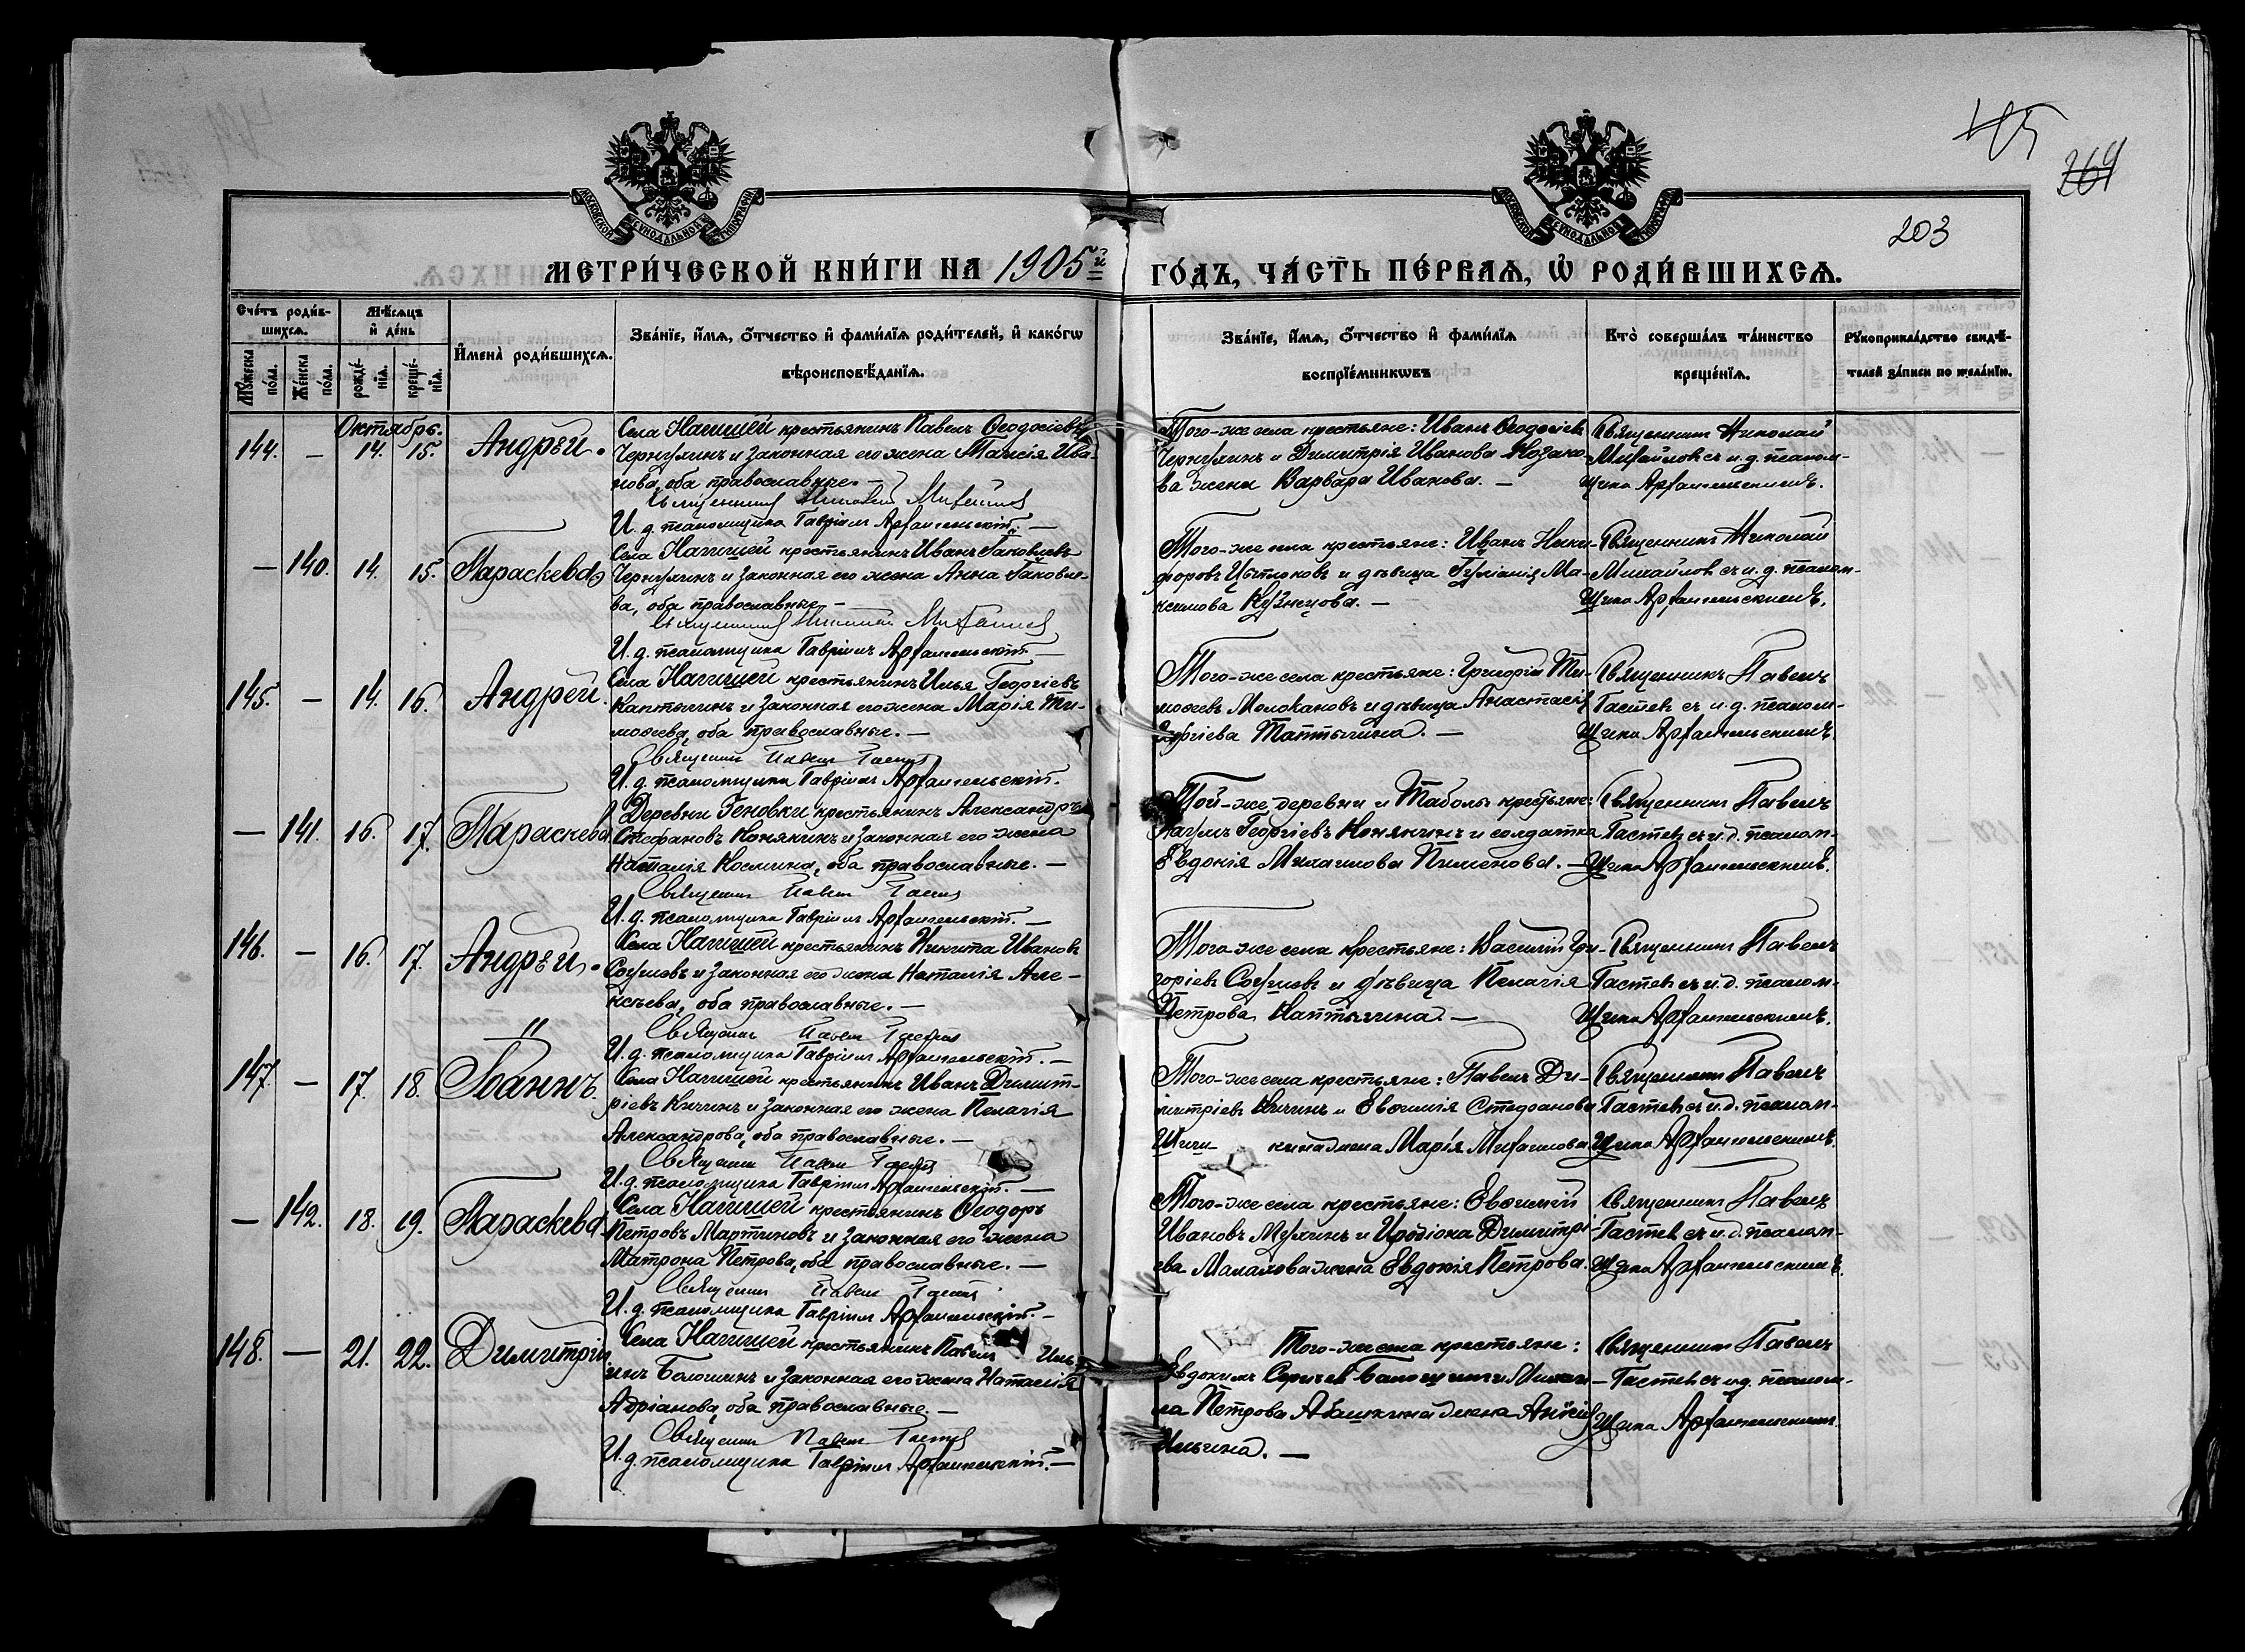 415
264
203
МОСКОВСКОЙ СѴНОДАЛЬНОЙ ТИПОГРАФІИ
МОСКОВСКОЙ СѴНОДАЛЬНОЙ ТИПОГРАФІИ
МЕТРИ́ЧЕСКОЙ КНИ́ГИ НА 1905й ГО́ДЪ, ЧА́СТЬ ПЕ́РВАѦ, Ѡ҆ РОДИ́ВШИХСѦ.
Сче́тъ роди́в-
шихсѧ.
Мꙋ́жеска по́ла.
Же́нска по́ла.
Мѣ́сѧцъ
и҆ де́нь
рожде́-
нїѧ.
креще́-
нїѧ.
И҆мена̀ роди́вшихсѧ.
Зва́нїе, и҆́мѧ, ѻ҆́тчество и҆ фами́лїѧ роди́телей, и҆ како́гѡ
вѣроисповѣ́данїѧ.
Зва́нїе, и҆́мѧ, ѻ҆́тчество и҆ фами́лїѧ
воспрїе́мникѡвъ
Кто̀ соверша́лъ та́инство
креще́нїѧ.
Рꙋкоприкла́дство свидѣ́-
телей за́писи по жела́нїю.
Октябрь.
144. — 14. 15. Андрѣй.
Села Нагишей крестьянинъ Павелъ Ѳеодосіевъ
и законная его жена Таисія Ива-
нова, оба православные. —
Священникъ Николай Михайловъ
И. д. псаломщика Гавріилъ Архангельскій. —
Того-же села крестьяне: Иванъ Ѳеодосіевъ
и Димитрія Иванова Козако-
ва жена Варвара Иванова. —
Священникъ Николай
Михайловъ съ и. д. псалом-
щика Архангельскимъ.
— 140. 14. 15. Параскева
Села Нагишей крестьянинъ Иванъ Іаковлевъ
и законная его жена Анна Іаковле-
ва, оба православные —
Священникъ Николай Михайловъ
И. д. псаломщика Гавріилъ Архангельскій —
Того-же села крестьяне: Иванъ Ники-
форовъ Цвѣтковъ и дѣвица Іуліанія Ма-
ксимова Кузнецова. —
Священникъ Николай
Михайловъ съ и. д. псалом-
щика Архангельскимъ.
145. — 14. 16. Андрей.
Села Нагишей крестьянинъ Илья Георгіевъ
Каптыгинъ и законная его жена Марія Ти-
моѳеева, оба православные. —
Священникъ Павелъ Гастевъ
И. д. псаломщика Гавріилъ Архангельскій.
Того-же села крестьяне: Григорій Ти-
моѳеевъ Молокановъ и дѣвица Анастасія
Георгіева —
Священникъ Павелъ
Гастевъ съ и. д. псалом-
щика Архангельскимъ.
— 141. 16. 17. Параскева
Деревни крестьянинъ Александръ
Стефановъ Конякинъ и законная его жена
Наталія Космина, оба православные. —
Священникъ Павелъ Гастевъ
И. д. псаломщика Гавріилъ Архангельскій. —
Той-же деревни и Таболъ крестьяне:
Наумъ Георгіевъ Конякинъ и солдатка
Евдокія Михаилова Пименова. —
Священникъ Павелъ
Гастевъ съ и. д. псалом-
щика Архангельскимъ.
146. — 16. 17. Андрѣй.
Села Нагишей крестьянинъ Никита Ивановъ
и законная его жена Наталія Але-
ксѣева, оба православные. —
Священникъ Павелъ Гастевъ
И. д. псаломщика Гавріилъ Архангельскій. —
Того-же села крестьяне: Василій Гри-
горіевъ и дѣвица Пелагія
Петрова Каптыгина —
Священникъ Павелъ
Гастевъ съ и. д. псалом-
щика Архангельскимъ.
147. — 17. 18. Іоаннъ.
Села Нагишей крестьянинъ Иванъ Димит-
ріевъ Кичинъ и законная его жена Пелагія
Александрова, оба православные. —
Священникъ Павелъ Гастевъ
И. д. псаломщика Гавріилъ Архангельскій. —
Того-же села крестьяне: Павелъ Ди-
митріевъ Кичинъ и Евѳимія Стефанова
Шичкина жена Марія Михаилова
Священникъ Павелъ
Гастевъ съ и. д. псалом-
щика Архангельскимъ.
— 142. 18. 19. Параскева
Села Нагишей крестьянинъ Ѳеодоръ
Петровъ Мартиновъ и законная его жена
Матрона Петрова, оба православные. —
Священникъ Павелъ Гастевъ
И. д. псаломщика Гавріилъ Архангельскій. —
Того-же села крестьяне: Евѳимій
Ивановъ и Иродіона Димитрі-
ева Малахова жена Евдокія Петрова.
Священникъ Павелъ
Гастевъ съ и. д. псалом-
щика Архангельскимъ.
148. — 21. 22. Димитрій
Села Нагишей крестьянинъ Павелъ Иль-
инъ и законная его жена Наталія
Адріанова, оба православные. —
Священникъ Павелъ Гастевъ
И. д. псаломщика Гавріилъ Архангельскій. —
Того-же села крестьяне:
Евдокимъ и Михаи-
ла Петрова жена
Ильина. —
Священникъ Павелъ
Гастевъ съ и. д. псалом-
щика Архангельскимъ.